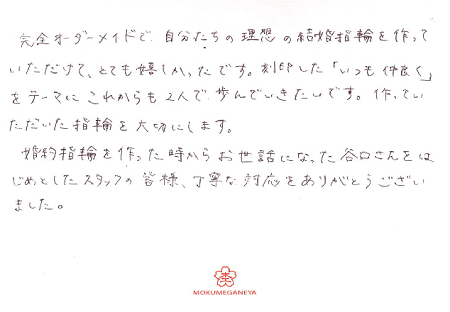 完全オーダーメイドで自分たちの理想の結婚指輪を作って
いただけて、とても嬉しかったです。刻印した「いつも仲良く」
をテーマにこれからも2人で歩んでいきたいです。作ってい
ただいた指輪を大切にします。
婚約指輪を作った時からお世話になった谷口さんをは
じめとしたスタッフの皆様、丁寧な対応をありがとうござい
ました。
MOKUMEGANEYA